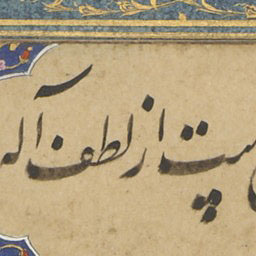 از لطف آله